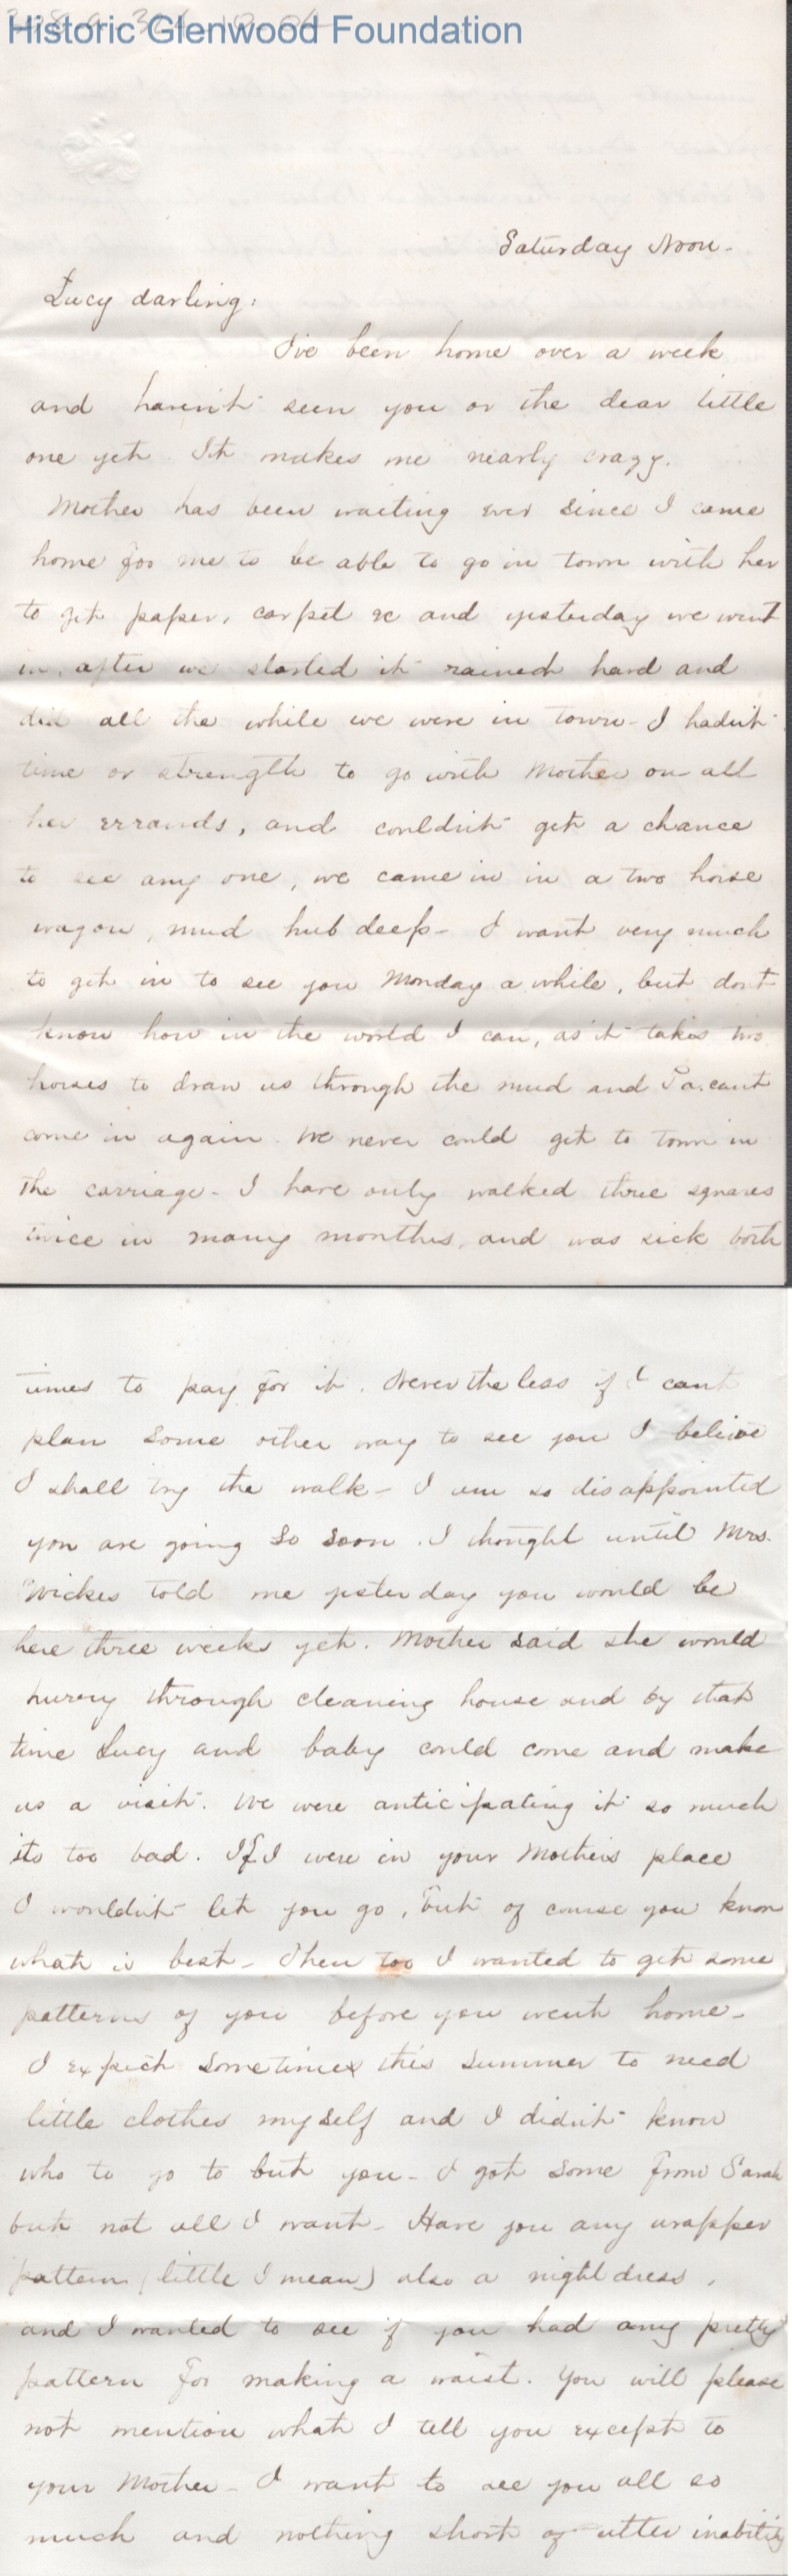 Historic Glenwood Foundation
Saturday Noon -
Lucy darling:
I've been home over a week
and havin't seen you or the dear little
one yet. It makes me nearly crazy.
Mother has been waiting ever since I came
home for me to be able to go in town with her
to get paper, carpet &c and yesterday we went
in, after we started it rained hard and
did all the while we were in town - I hadn't
time or strength to go with Mother on all
her errands, and couldn't get a chance
to see any one, we came in in a two horse
wagon, mud hub deep - I want very much
to get in to see you Monday a while, but dont
know how in the world I can, as it takes two
horses to draw us through the mud and Pa cant
come in again. We never could get to town in
the carriage - I have only walked three squares
twice in many months, and was sick both
times to pay for it. Nevertheless if I cant
plan some other way to see you I believe
I shall try the walk - I am so disappointed
you are going so soon. I thought until Mrs.
Wickes told me yesterday you would be
here three weeks yet. Mother said she would
hurry through cleaning house and by that
time Lucy and baby could come and make
us a visit. We were anticipating it so much
its too bad. If I were in your Mothers place
I wouldn't let you go, but of course you know
what is best - Then too I wanted to get some
patterns of you before you went home -
I expect sometimes this summer to need
little clothes myself and I didn't know
who to go to but you - I got some from Sarah
but not all I want - Have you any wrapper
pattern (little I mean) also a night dress,
and I wanted to see if you had any pretty
pattern for making a waist. You will please
not mention what I tell you except to
your Mother - I want to see you all so
much and nothing short of utter inability